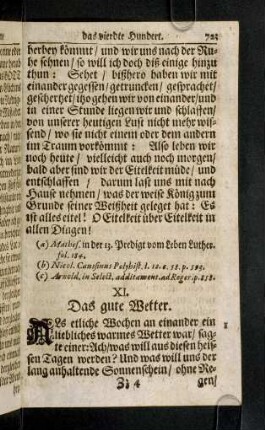 das vierdte Hundert. 723
herbey kömmt / und wir uns nach der Ru-
he sehnen / so will ich doch diß einige hinzu
thun: Sehet / bißhero haben wir mit
einander gegessen / getruncken / gesprachet /
geschertzet / itzo gehen wir von einander / und
in einer Stunde liegen wir und schlaffen /
von unserer heutigen Lust nicht mehr wis-
send / wo sie nicht einem oder dem andern
im Traum vorkömmt: Also leben wir
noch heute / vielleicht auch noch morgen /
bald aber sind wir der Eitelkeit müde / und
entschlaffen / darum last uns mit nach
Hause nehmen / was der weise König zum
Grunde seiner Weißheit geleget hat: Es
ist alles eitel! O Eitelkeit über Eitelkeit in
allen Dingen!
(a) Mathes. in der 13. Predigt vom Leben Luther.
fol. 184.
(b) Nicol. Caussinus Polyhist. l. 10. c. 58. p. 595.
(c) Arnold. in Select. additament. ad Roger. p. 858.
XI.
Das gute Wetter.
ALs etliche Wochen an einander ein
liebliches warmes Wetter war / sag-
te einer: Ach / was will aus diesen heis-
sen Tagen werden? Und was will uns der
lang anhaltende Sonnenschein / ohne Re-
Zz 4 gen /